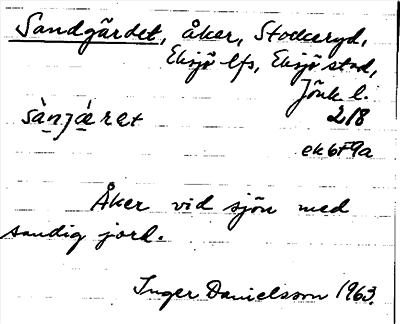 Sandgärdet, åker, Stockeryd,
Eksjö lfs, Eksjö stad,
Jönk. l.
sànjæ̀ret 2/8
ek6F9a
Åker vid sjön med
sandig jord.
Inger Danielsson 1963.